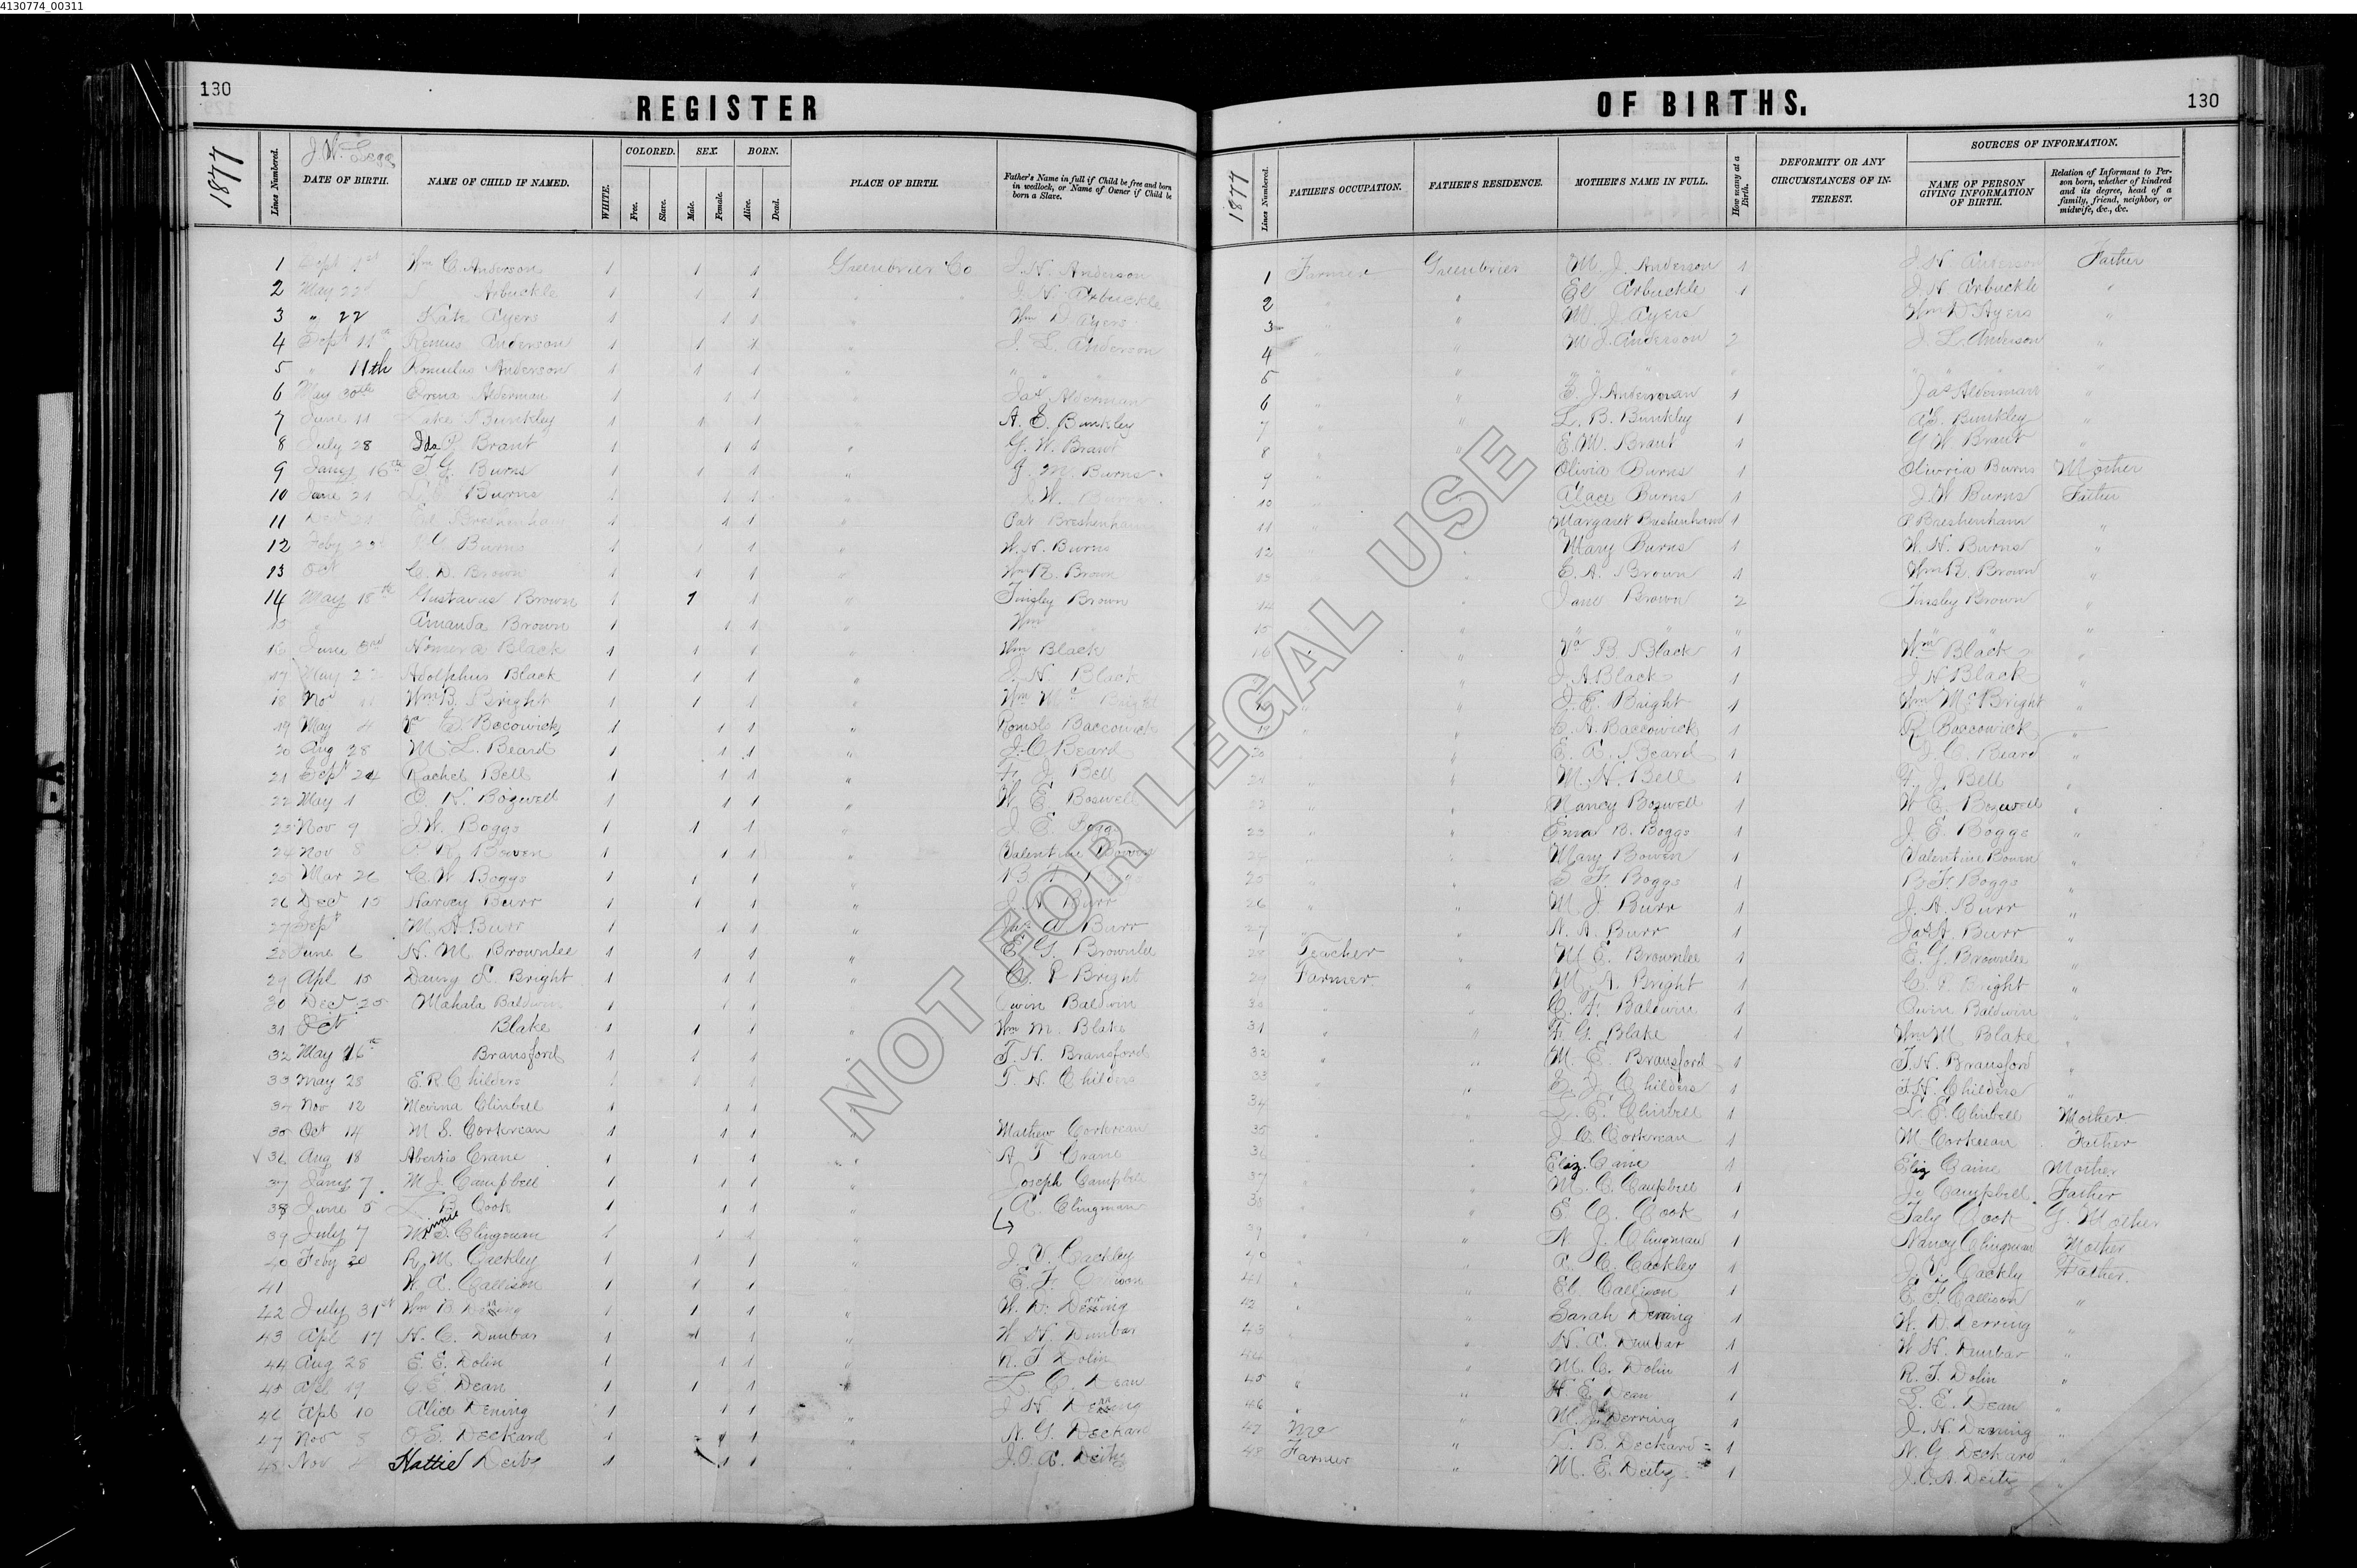 4130774_00311
130
REGISTER
1877
Lines Numbered.
J. W. Legg
DATE OF BIRTH.
NAME OF CHILD IF NAMED.
WHITE.
COLORED.
Free.
Slave.
SEX.
Male.
Female.
BORN.
Alive.
Dead.
PLACE OF BIRTH.
Father's Name in full if Child be free and born in wedlock, or Name of Owner if Child be born a Slave.
1 Sept 1st Wm C. Anderson 1 1 1 Greenbrier Co J. N. Anderson
2 May 22d Arbuckle 1 1 1 J. H. Arbuckle
3 " 22 Kate Ayers 1 1 1 Wm D Ayers
4 Sept 11th Remus Anderson 1 1 1 " J. L. Anderson
5 " 11th Romulus Anderson 1 1 1 " " "
6 May 30th Alderman 1 1 1 Jas Alderman
7 June 11 Bunkley 1 1 1 A. E. Bunkley
8 July 28 Ida Brant 1 1 1 " G. W. Brant
9 Jany 16th T. G. Burns 1 1 1 " J. M. Burns
10 June 21 Burns 1 1 1 " J. W. Burns
11 Breshenham 1 1 1 " Pat Breshenham
12 Feby Burns 1 1 1 " W. H. Burns
13 Oct C. D. Brown 1 1 1 " Wm R. Brown
14 May 18th Gustavus Brown 1 1 1 " Tinsley Brown
15 " Amanda Brown 1 1 1 " Wm
16 June Black 1 1 1 " Wm Black
17 May 22 Adolphus Black 1 1 1 " J. N. Black
18 Nov 11 Wm B. Bright 1 1 1 " Wm Mc Bright
19 May 4 Va E. Bacowick 1 1 1 " Baccowick
20 Aug 28 M. L. Beard 1 1 1 " J. C Beard
21 Sept 24 Rachel Bell 1 1 1 " F. J. Bell
22 May 1 O. K. Bozwell 1 1 1 " W. E. Boswell
23 Nov 9 J. W. Boggs 1 1 1 " J. E. Boggs
24 Nov 8 R. Bowen 1 1 1 " Valentine Bowen
25 Mar 26 C. W Boggs 1 1 1 " B. F. Boggs
26 Decr 15 Harvey Burr 1 1 1 " J. A. Burr
27 Sept M. A. Burr 1 1 1 " Jas A Burr
28 June 6 H. M. Brownlee 1 1 1 " E. G. Brownlee
29 Apl 15 Daisy L. Bright 1 1 1 " C. P Bright
30 Decr 25 Mahala Baldwin 1 1 1 Owin Baldwin
31 Oct Blake 1 1 1 " Wm M. Blake
32 May 16th Bransford 1 1 1 " T. H. Bransford
33 May 28 E. R. Childers 1 1 1 " T. H. Childers
34 Nov 12 Mevina Clinbell 1 1 1 "
35 Oct 14 M. S. Corkrean 1 1 1 " Mathew Corkrean
36 Aug 18 Abertis Crane 1 1 1 " A. T. Crane
37 Jany 7 M. J. Campbell 1 1 1 " Joseph Campbell
38 June 5 L. B. Cook 1 1 1 " A. Clingman
39 July 7 Minnie S. Clingman 1 1 1 "
40 Feby 20 R. M Cackley 1 1 1 " J. V. Cackley
41 W. A. Callison 1 1 1 E. F. Callison
42 July 31st Wm B. Derring 1 1 1 " W. D. Derring
43 Apl 17 H. C. Dunbar 1 1 1 " W. H. Dunbar
44 Aug 28 E. E. Dolin 1 1 1 " R. T Dolin
45 Apl 19 C. E. Dean 1 1 1 " L. C. Dean
46 Apl 10 Alice Dening 1 1 1 " J. H. Derring
47 Nov 8 O. E. Deckard 1 1 1 " N. G. Deckard
48 Nov Hattie Deitz 1 1 1 " J. O. A. Deitz
OF BIRTHS.
130
1877
Lines Numbered.
FATHER'S OCCUPATION.
FATHER'S RESIDENCE.
MOTHER'S NAME IN FULL.
How many at a Birth.
DEFORMITY OR ANY CIRCUMSTANCES OF INTEREST.
SOURCES OF INFORMATION.
NAME OF PERSON GIVING INFORMATION OF BIRTH.
Relation of Informant to Person born, whether of kindred and its degree, head of a family, friend, neighbor, or midwife, &c., &c.
1 Farmer Greenbrier M. J. Anderson 1 J. N Anderson Father
2 " " El Arbuckle 1 J. H. Arbuckle "
3 " " M. J. Ayers Wm D. Ayers "
4 " " M J. Anderson 2 J. L. Anderson "
5 " " " " " " "
6 " " E. J. 1 Jas Alderman "
7 " " L. B. Bunkley 1 A E. Bunkley "
8 " " E. M. Brant 1 G W Brant "
9 " Olivia Burns 1 Burns Mother
10 " Alace Burns 1 J. W Burns Father
11 " Margaret Breshenham 1 P Breshenham "
12 " Mary Burns 1 W. H. Burns "
13 " E. A. Brown 1 Wm R. Brown "
14 " Jane Brown 2 Tinsley Brown "
15 " " " " " " "
16 " Va B. Black 1 Wm Black "
17 " J. A Black 1 J N Black "
18 " J. E. Bright 1 Wm Mc Bright "
19 " C. A. Baccowick 1 R Baccowick "
20 " E. A. Beard 1 J. C. Beard "
21 " " M. H. Bell 1 F. J. Bell "
22 " " Nancy Bozwell 1 W E. Bozwell "
23 " " Emma B. Boggs 1 J. E. Boggs "
24 " " Mary Bowen 1 Valentine Bowen "
25 " " S F. Boggs 1 B F. Boggs "
26 " " M. J. Burr 1 J. A. Burr "
27 " N. A. Burr 1 Jas A. Burr "
28 Teacher " M. E. Brownlee 1 E. G. Brownlee "
29 Farmer " M. A. Bright 1 C. P. Bright "
30 " " C. F. Baldwin 1 Owin Baldwin "
31 " " F. G. Blake 1 Wm M Blake "
32 " " M. E. Bransford 1 T. H. Bransford "
33 " E. J. Childers 1 T. H. Childers "
34 " L. E. Clinbell 1 L. E. Clinbell Mother
35 " " J. C. Corkrean 1 M. Corkrean Father
36 " Eliz. Caine 1 Eliz Caine Mother
37 " M. C. Campbell 1 Jo Campbell Father
38 " " E. C. Cook 1 Taly Cook G. Mother
39 " " N. J. Clingman 1 Nancy Clingman Mother
40 " " A. C. Cackley 1 J. V. Cackly Father
41 " " El Callison 1 E. F. Callison "
42 " " Sarah Derring 1 W. D. Derring "
43 " N. A. Dunbar 1 W H. Dunbar "
44 " M. C. Dolin 1 R. T. Dolin "
45 " " H. E. Dean 1 L. E. Dean "
46 " " M. Derring 1 J. H. Derring "
47 " L. B. Deckard 1 N. G Deckard "
48 Farmer " M. E. Deitz 1 J. O. A. Deitz "
NOT FOR LEGAL USE